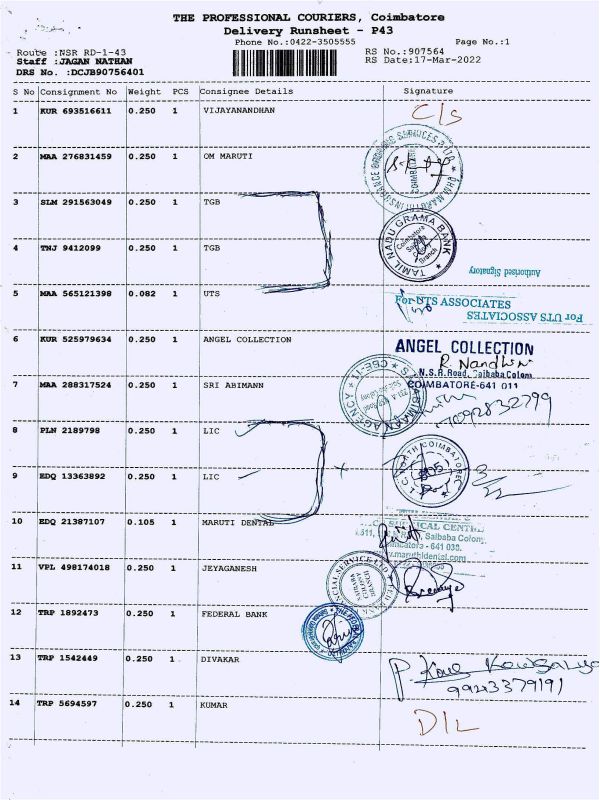 THE PROFESSIONAL COURIERS, Coimbatore
Delivery Runsheet - P43
Phone No.:0422-3505555 Page No.:1
Route :NSR RD-1-43 RS No.:907564
Staff :JAGAN NATHAN RS Date:17-Mar-2022
DRS No. :DCJB90756401
S No Consignment No Weight PCS Consignee Details Signature
1 KUR 693516611 0.250 1 VIJAYANANDHAN C/S
2 MAA 276831459 0.250 1 OM MARUTI
3 SLM 291563049 0.250 1 TGB
TAMIL NADU GRAMA BANK
Coimbatore
Branch
4 TNJ 9412099 0.250 1 TGB
Authorised Signatory
5 MAA 565121398 0.082 1 UTS
For UTS ASSOCIATES
For UTS ASSOCIATES
6 KUR 525979634 0.250 1 ANGEL COLLECTION
ANGEL COLLECTION
N.S.R.Road, Saibaba Colony
COIMBATORE-641 011
7 MAA 288317524 0.250 1 SRI ABIMANN
8 PLN 2189798 0.250 1 LIC
9 EDQ 13363892 0.250 1 LIC
10 EDQ 21387107 0.105 1 MARUTI DENTAL
11 VPL 498174018 0.250 1 JEYAGANESH
12 TRP 1892473 0.250 1 FEDERAL BANK
13 TRP 1542449 0.250 1 DIVAKAR
9943379191
14 TRP 5694597 0.250 1 KUMAR
D/L